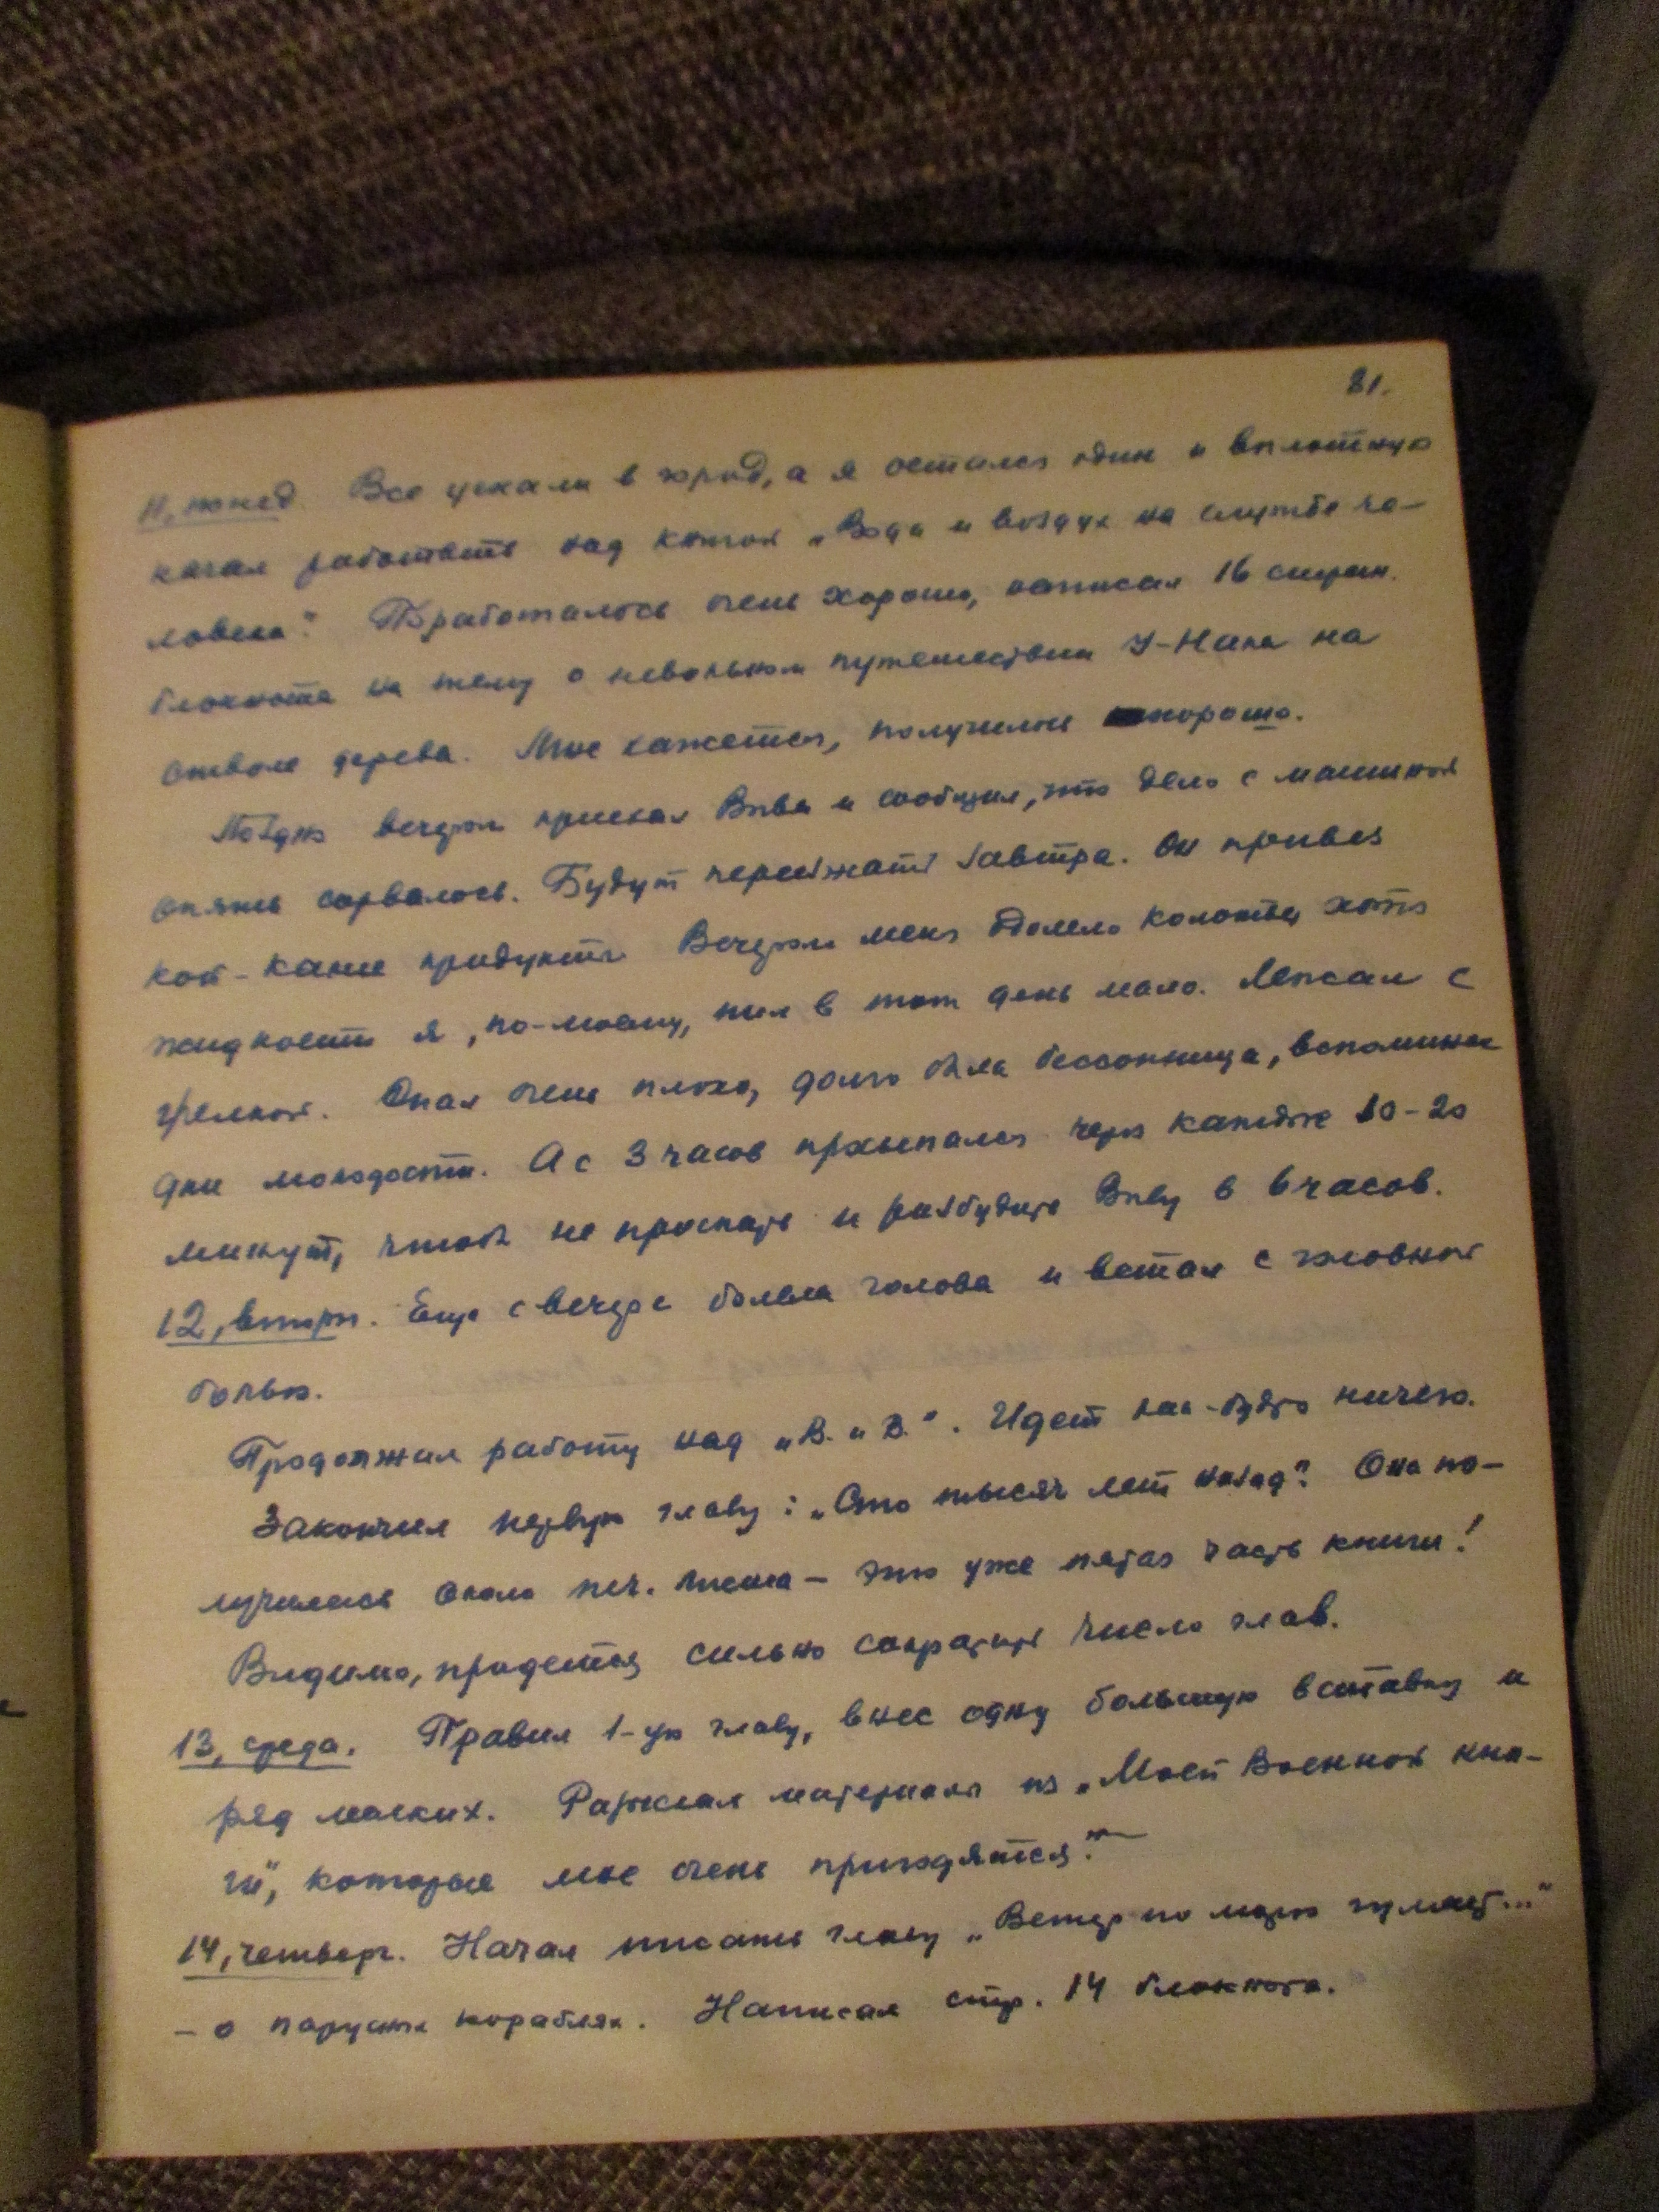 81.
11, понед. Все уехали в город, а я остался один и вплотную
начал работать над книгой „Вода и воздух на службе че-
ловека". Поработалось очень хорошо, написал 16 стран.
блокнота на тему о невольном путешествии У-Нака на
стволе дерева. Мне кажется, получилось хорошо.
Поздно вечером приехал Вива и сообщил, что дело с машиной
опять сорвалось. Будут переезжать завтра. Он привез
кой-какие продукты. Вечером меня одолело колотье, хотя
жидкости я, по-моему, пил в этот день мало. Лежал с
грелкой. Спал очень плохо, долго была бессонница, вспоминал
дни молодости. А с 3 часов просыпался через каждые 10-20
минут, чтобы не проспать и разбудить Виву в 6 часов.
12, вторн. Еще с вечера болела голова и встал с головной
болью.
Продолжал работу над „В. и В.". Идет как-будто ничего.
Закончил первую главу: „Сто тысяч лет назад". Она по-
лучилась около печ. листа — это уже пятая часть книги!
Видимо, придется сильно сократить число глав.
13, среда. Правил 1-ую главу, внес одну большую вставку и
ряд мелких. Разыскал материалы из „Моей Военной кни-
ги", которые мне очень пригодятся.
14, четверг. Начал писать главу „Ветер по морю гуляет..."
— о парусных кораблях. Написал стр. 14 блокнота.